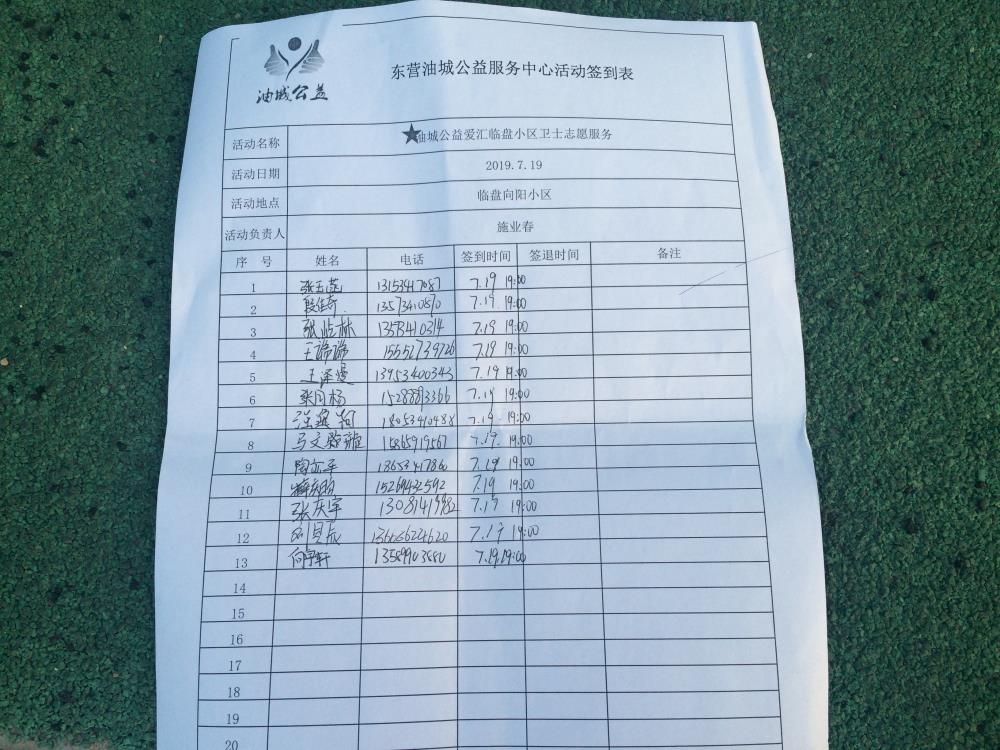 油城公益
东营油城公益服务中心活动签到表
活动名称 ★油城公益爱汇临盘小区卫士志愿服务
活动日期 2019.7.19
活动地点 临盘向阳小区
活动负责人 施业春
序 号 姓名 电话 签到时间 签退时间 备注
1 张玉蕊 13153417087 7.19 19:00
2 13573410810 7.19 19:00
3 13573410314 7.19 19:00
4 王谛谛 15552739726 7.19 19:00
5 13953400343 7.19 19:00
6 15288893366 7.19 19:00
7 18053410488 7.19 19:00
8 15865919567 7.19 19:00
9 13653417860 7.19 19:00
10 15269432592 7.19 19:00
11 张庆宇 13081419982 7.19 19:00
12 7.19 19:00
13 7.19 19:00
14
15
16
17
18
19
20